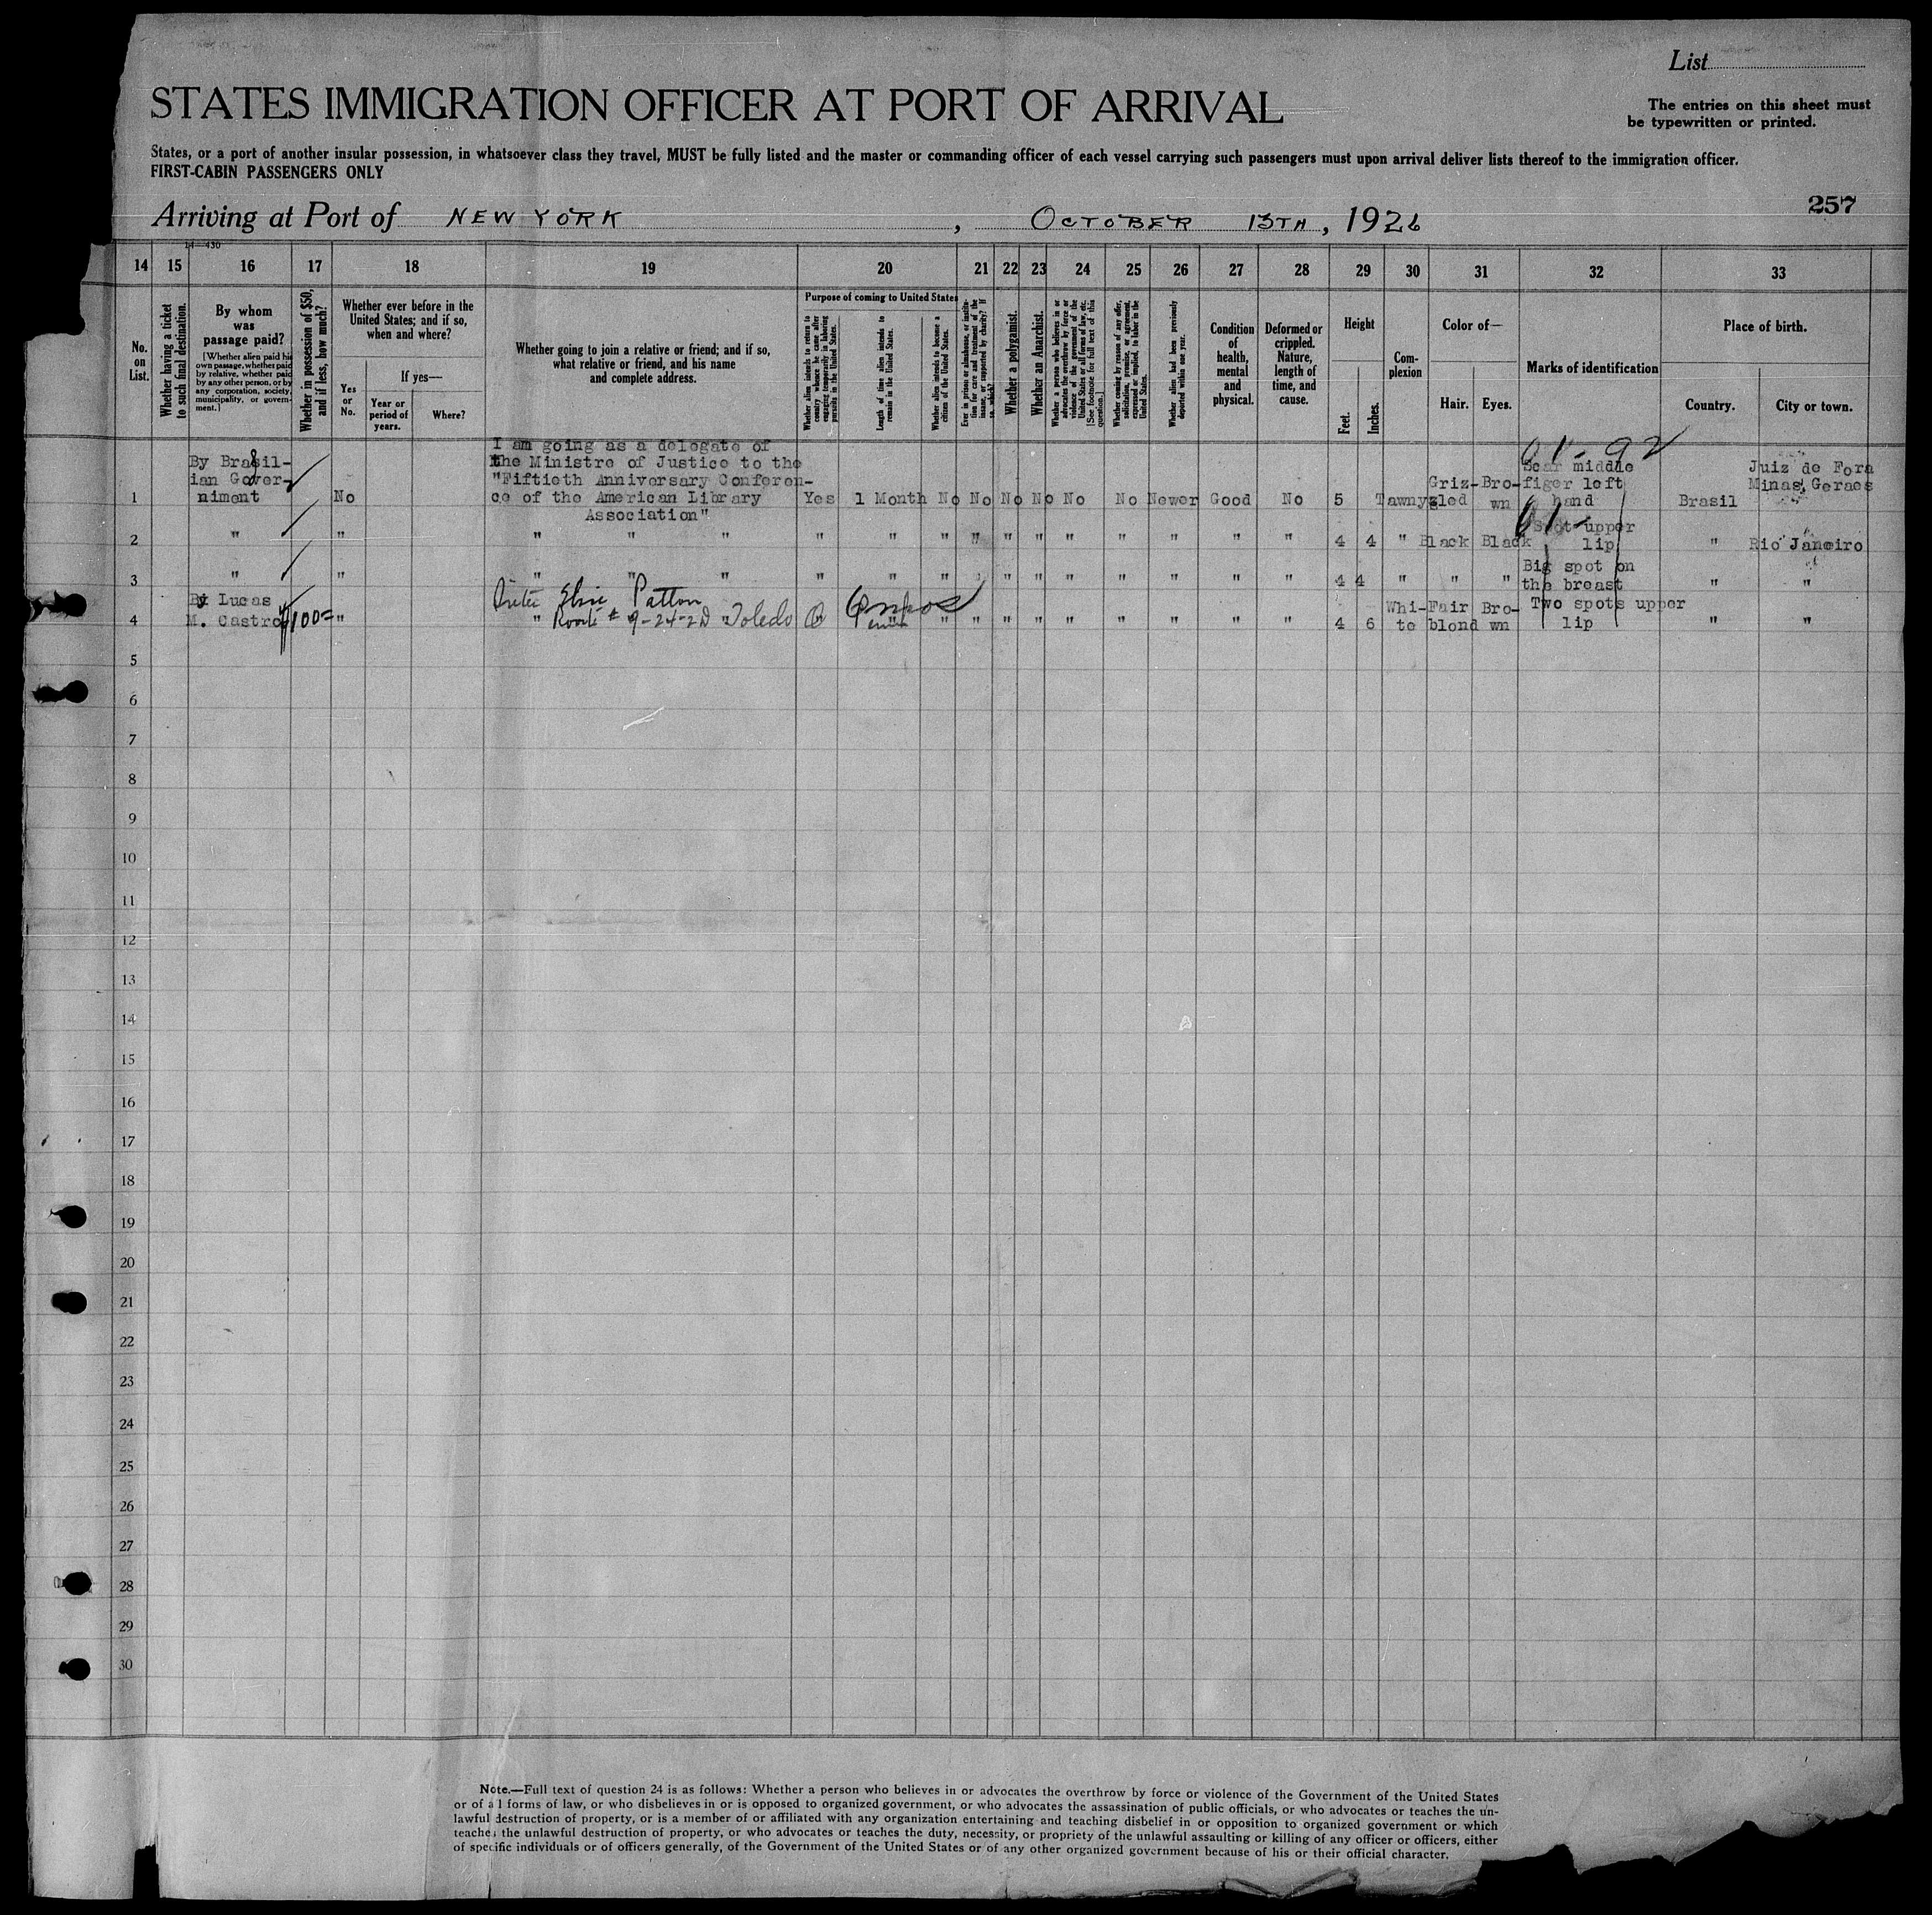 List
STATES IMMIGRATION OFFICER AT PORT OF ARRIVAL
The entries on this sheet must
be typewritten or printed.
States, or a port of another insular possession, in whatsoever class they travel, MUST be fully listed and the master or commanding officer of each vessel carrying such passengers must upon arrival deliver lists thereof to the immigration officer.
FIRST-CABIN PASSENGERS ONLY
257
Arriving at Port of NEW YORK, OCTOBER 13TH, 1926
14—430
14 15 16 17 18 19 20 21 22 23 24 25 26 27 28 29 30 31 32 33
No.
on
List.
Whether having a ticket
to such final destination.
By whom
was
passage paid?
[Whether alien paid his
own passage, whether paid
by relative, whether paid
by any other person, or by
any corporation, society,
municipality, or govern-
ment.]
Whether in possession of $50,
and if less, how much?
Whether ever before in the
United States; and if so,
when and where?
Yes
or
No.
If yes—
Year or
period of
years.
Where?
Whether going to join a relative or friend; and if so,
what relative or friend, and his name
and complete address.
Purpose of coming to United States
Whether alien intends to return to
country whence he came after
engaging temporarily in laboring
pursuits in the United States.
Length of time alien intends to
remain in the United States.
Whether alien intends to become a
citizen of the United States.
Ever in prison or almshouse, or institu-
tion for care and treatment of the
insane, or supported by charity? If
so, which?
Whether a polygamist.
Whether an Anarchist.
Whether a person who believes in or
advocates the overthrow by force or
violence of the government of the
United States or all forms of law, etc.
[See footnote for full text of this
question.]
Whether coming by reason of any offer,
solicitation, promise, or agreement,
expressed or implied, to labor in the
United States.
Whether alien had been previously
deported within one year.
Condition
of
health,
mental
and
physical.
Deformed or
crippled.
Nature,
length of
time, and
cause.
Height
Feet.
Inches.
Com-
plexion
Color of—
Hair.
Eyes.
Marks of identification
Place of birth.
Country.
City or town.
I am going as a delegate of
By Brasil-
the Ministre of Justice to the
Scar middle
Juiz de Fora
ian Gover-
"Fiftieth Anniversary Conferen-
Griz- Bro- figer left
Minas Geraes
1 niment No ce of the American Library Yes 1 Month No No No No No No Newer Good No 5 Tawny zled wn hand Brasil
Association"
Spot upper
2 " " " " " " " " " " " " " " " " 4 4 " Black Black lip " Rio Janeiro
Big spot on
3 " " " " " " " " " " " " " " " " 4 4 " " " the breast " "
By Lucas
Elsie Patton
Whi- Fair Bro- Two spots upper
4 M. Castro $100= " " # 9-24-2D " Toledo " " " " " " " " " " 4 6 te blond wn lip " "
5
6
7
8
9
10
11
12
13
14
15
16
17
18
19
20
21
22
23
24
25
26
27
28
29
30
Note.—Full text of question 24 is as follows: Whether a person who believes in or advocates the overthrow by force or violence of the Government of the United States
or of all forms of law, or who disbelieves in or is opposed to organized government, or who advocates the assassination of public officials, or who advocates or teaches the un-
lawful destruction of property, or is a member of or affiliated with any organization entertaining and teaching disbelief in or opposition to organized government or which
teaches the unlawful destruction of property, or who advocates or teaches the duty, necessity, or propriety of the unlawful assaulting or killing of any officer or officers, either
of specific individuals or of officers generally, of the Government of the United States or of any other organized government because of his or their official character.